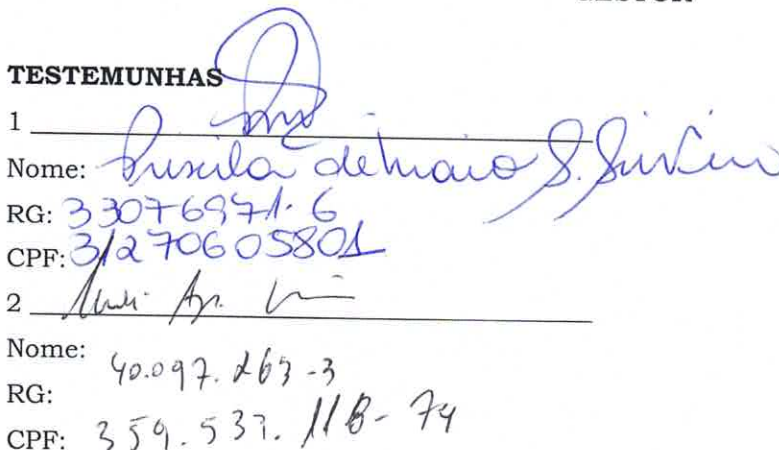 TESTEMUNHAS
1
Nome: Priscila de Maio S.
RG: 33076971-6
CPF: 31270605801
2
Nome:
RG: 40.097.263-3
CPF: 359.537.118-74